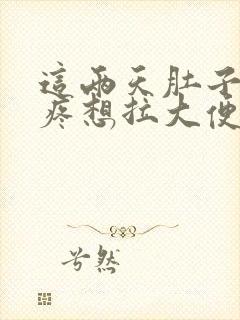 這兩天肚子
疼想拉大便
兮然